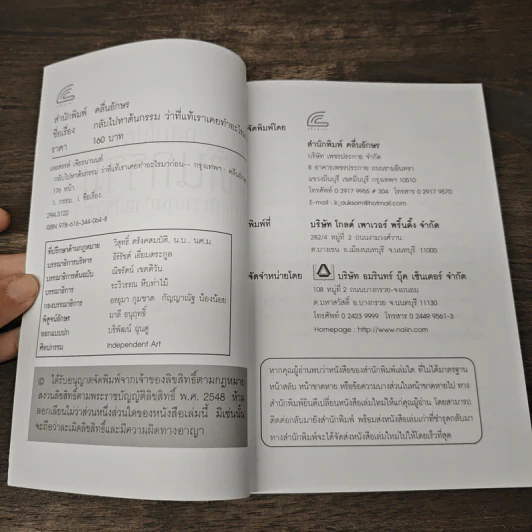 สำนักพิมพ์ คลื่นอักษร
ชื่อเรื่อง กลับไปหาต้นกรรม ว่าที่แท้เราเคยทำอะไร
ราคา 160 บาท
กลับไปหาต้นกรรม ว่าที่แท้เราเคยทำอะไรมาก่อน-- กรุงเทพฯ : คลื่นอักษร
176 หน้า.
1. กรรม. I. ชื่อเรื่อง
294.3122
ISBN 978-616-344-064-8
ที่ปรึกษาด้านกฎหมาย วิสุทธิ์ ตรังคสมบัติ, น.บ., นศ.ม.
บรรณาธิการบริหาร ธีร์รัชต์ เอี่ยมตระกูล
บรรณาธิการต้นฉบับ ณัชรัตน์ เขตติวัน
บรรณาธิการ ระวิวรรณ ทิบทำไม้
กองบรรณาธิการ อรอุมา กุมชาต กัญญาณัฐ น้องน้อย
พิสูจน์อักษร มาลี อนุฤทธิ์
ออกแบบปก บริพัฒน์ ฉุนดู
ศิลปกรรม Independent Art
© ได้รับอนุญาตจัดพิมพ์จากเจ้าของลิขสิทธิ์ตามกฎหมาย
สงวนลิขสิทธิ์ตามพระราชบัญญัติลิขสิทธิ์ พ.ศ. 2548 ห้าม
ลอกเลียนไม่ว่าส่วนหนึ่งส่วนใดของหนังสือเล่มนี้ มิเช่นนั้น
จะถือว่าละเมิดลิขสิทธิ์และมีความผิดทางอาญา
จัดพิมพ์โดย
สำนักพิมพ์ คลื่นอักษร
บริษัท เพชรประกาย จำกัด
8 อาคารเพชรประกาย ถนนรามอินทรา
แขวงมีนบุรี เขตมีนบุรี กรุงเทพฯ 10510
โทรศัพท์ 0 2917 9955 # 304 โทรสาร 0 2917 9870
E-mail : k_auksorn@hotmail.com
พิมพ์ที่ บริษัท โกลด์ เพาเวอร์ พริ้นติ้ง จำกัด
282/4 หมู่ที่ 2 ถนนงามวงศ์วาน
ต.บางเขน อ.เมืองนนทบุรี จ.นนทบุรี 11000
จัดจำหน่ายโดย บริษัท อมรินทร์ บุ๊ค เซ็นเตอร์ จำกัด
108 หมู่ที่ 2 ถนนบางกรวย-จงถนอม
ต.มหาสวัสดิ์ อ.บางกรวย จ.นนทบุรี 11130
โทรศัพท์ 0 2423 9999 โทรสาร 0 2449 9561-3
Homepage : http://www.naiin.com
หากคุณผู้อ่านพบว่าหนังสือของสำนักพิมพ์เล่มใด ที่ไม่ได้มาตรฐาน
หน้าสลับ หน้าขาดหาย หรือข้อความบางส่วนในหน้าขาดหายไป ทาง
สำนักพิมพ์ยินดีเปลี่ยนหนังสือเล่มใหม่ให้แก่คุณผู้อ่าน โดยสามารถ
ติดต่อกลับมายังสำนักพิมพ์ พร้อมส่งหนังสือเล่มเก่าที่ชำรุดกลับมา
ทางสำนักพิมพ์จะได้จัดส่งหนังสือเล่มใหม่ไปให้โดยเร็วที่สุด